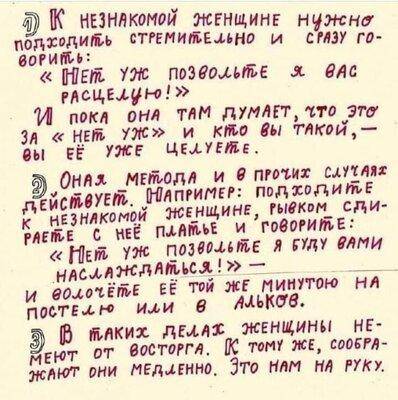 1) К НЕЗНАКОМОЙ ЖЕНЩИНЕ НУЖНО
ПОДХОДИТЬ СТРЕМИТЕЛЬНО И СРАЗУ ГО-
ВОРИТЬ:
« НЕТ УЖ ПОЗВОЛЬТЕ Я ВАС
РАСЦЕЛУЮ!»
И ПОКА ОНА ТАМ ДУМАЕТ, ЧТО ЭТО
ЗА « НЕТ УЖ» И КТО ВЫ ТАКОЙ, —
ВЫ ЕЁ УЖЕ ЦЕЛУЕТЕ.
2) ОНАЯ МЕТОДА И В ПРОЧИХ СЛУЧАЯХ
ДЕЙСТВУЕТ. НАПРИМЕР: ПОДХОДИТЕ
К НЕЗНАКОМОЙ ЖЕНЩИНЕ, РЫВКОМ СДИ-
РАЕТЕ С НЕЁ ПЛАТЬЕ И ГОВОРИТЕ:
« НЕТ УЖ ПОЗВОЛЬТЕ Я БУДУ ВАМИ
НАСЛАЖДАТЬСЯ!» —
И ВОЛОЧЁТЕ ЕЁ ТОЙ ЖЕ МИНУТОЮ НА
ПОСТЕЛЮ ИЛИ В АЛЬКОВ.
3) В ТАКИХ ДЕЛАХ ЖЕНЩИНЫ НЕ-
МЕЮТ ОТ ВОСТОРГА. К ТОМУ ЖЕ, СООБРА-
ЖАЮТ ОНИ МЕДЛЕННО. ЭТО НАМ НА РУКУ.